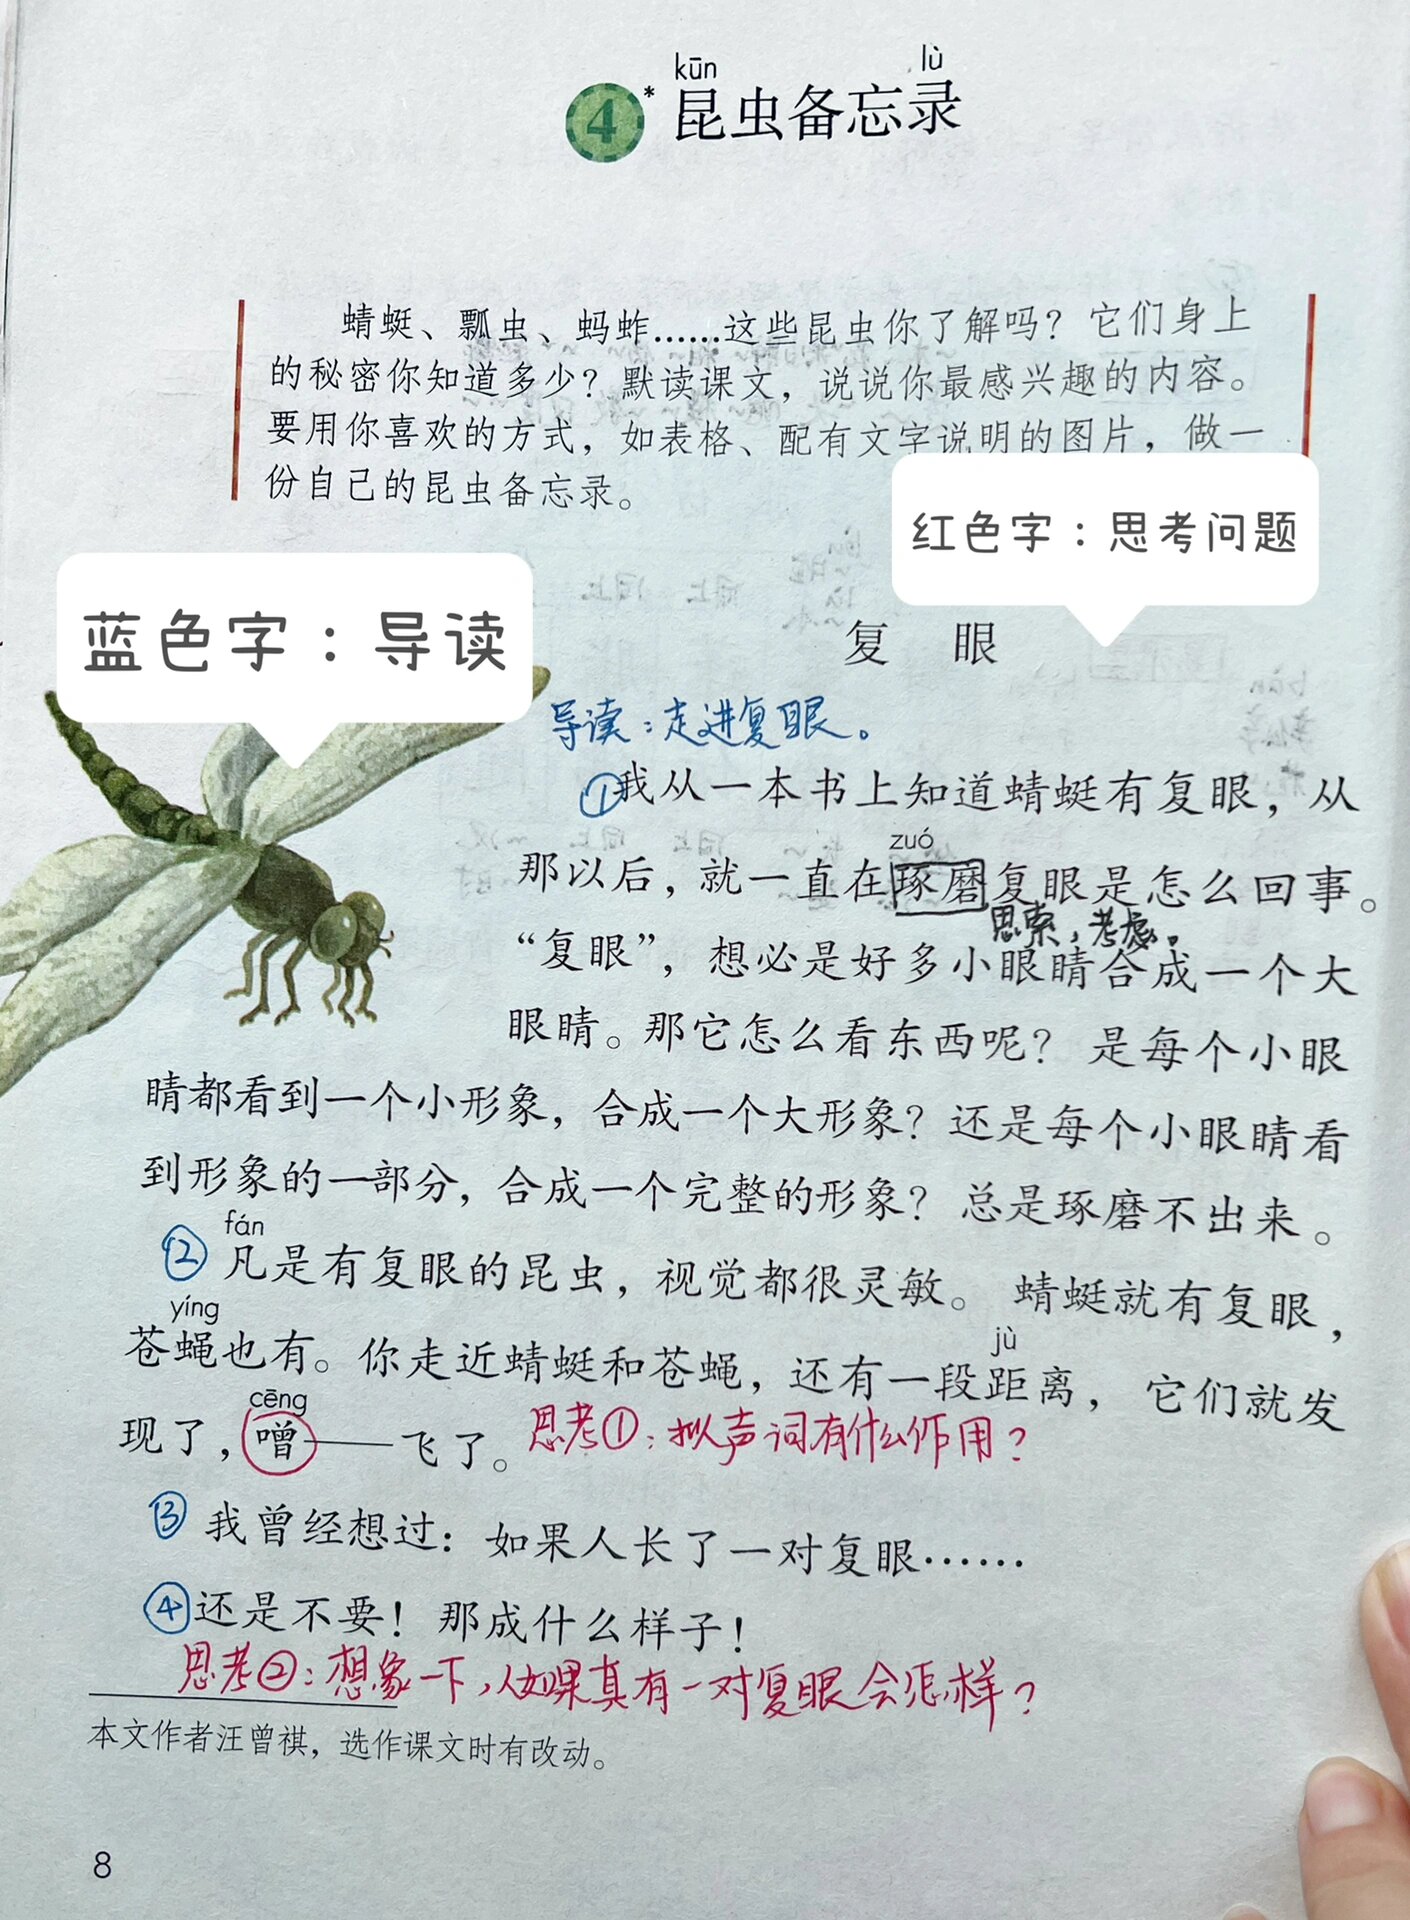 kūn lù
4* 昆虫备忘录
蜻蜓、瓢虫、蚂蚱……这些昆虫你了解吗？它们身上
的秘密你知道多少？默读课文，说说你最感兴趣的内容。
要用你喜欢的方式，如表格、配有文字说明的图片，做一
份自己的昆虫备忘录。
红色字：思考问题
蓝色字：导读
复眼
导读：走进复眼。
①我从一本书上知道蜻蜓有复眼，从
zuó
那以后，就一直在琢磨复眼是怎么回事。
思索，考虑。
“复眼”，想必是好多小眼睛合成一个大
眼睛。那它怎么看东西呢？是每个小眼
睛都看到一个小形象，合成一个大形象？还是每个小眼睛看
到形象的一部分，合成一个完整的形象？总是琢磨不出来。
fán
②凡是有复眼的昆虫，视觉都很灵敏。蜻蜓就有复眼，
yíng jù
苍蝇也有。你走近蜻蜓和苍蝇，还有一段距离，它们就发
cēng
现了，噌——飞了。思考①：拟声词有什么作用？
③我曾经想过：如果人长了一对复眼……
④还是不要！那成什么样子！
思考②：想象一下，人如果真有一对复眼会怎样？
本文作者汪曾祺，选作课文时有改动。
8